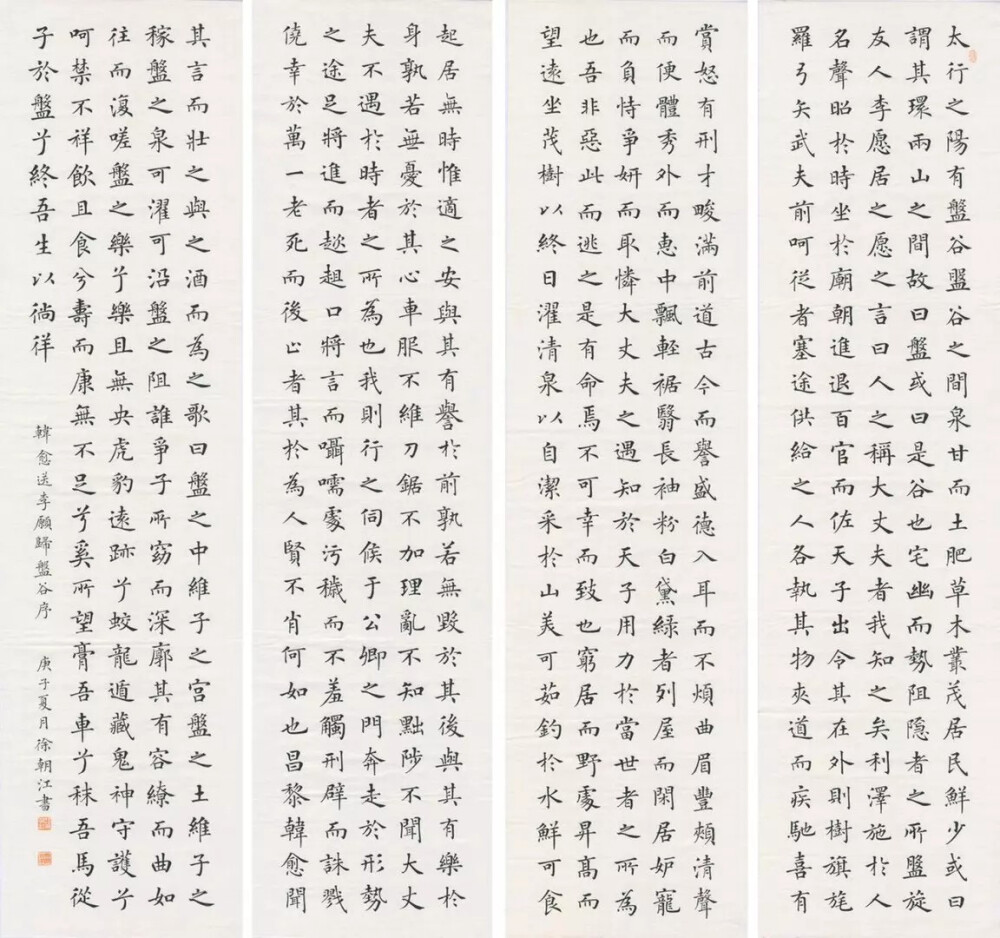 太行之陽有盤谷盤谷之間泉甘而土肥草木叢茂居民鮮少或曰
謂其環兩山之間故曰盤或曰是谷也宅幽而勢阻隐者之所盤旋
友人李愿居之愿之言曰人之稱大丈夫者我知之矣利澤施於人
名聲昭於時坐於廟朝進退百官而佐天子出令其在外則樹旗旄
羅弓矢武夫前呵從者塞途供給之人各執其物夾道而疾馳喜有
賞怒有刑才畯滿前道古今而譽盛德入耳而不煩曲眉豐頰清聲
而便體秀外而惠中飄輕裾翳長袖粉白黛緑者列屋而閑居妒寵
而負恃爭妍而取憐大丈夫之遇知於天子用力於當世者之所為
也吾非惡此而逃之是有命焉不可幸而致也窮居而野處昇高而
望遠坐茂樹以終日濯清泉以自潔采於山美可茹釣於水鮮可食
起居無時惟適之安與其有譽於前孰若無毀於其後與其有樂於
身孰若無憂於其心車服不維刀鋸不加理亂不知黜陟不聞大丈
夫不遇於時者之所為也我則行之伺候于公卿之門奔走於形勢
之途足將進而趑趄口將言而囁嚅處污穢而不羞觸刑辟而誅戮
僥幸於萬一老死而後止者其於為人賢不肖何如也昌黎韓愈聞
其言而壯之與之酒而為之歌曰盤之中維子之宫盤之土維子之
稼盤之泉可濯可沿盤之阻誰爭子所窈而深廓其有容繚而曲如
往而復嗟盤之樂兮樂且無央虎豹遠跡兮蛟龍遁藏鬼神守護兮
呵禁不祥飲且食兮壽而康無不足兮奚所望膏吾車兮秣吾馬從
子於盤兮終吾生以徜徉
韓愈送李願歸盤谷序 庚子夏月徐朝江書